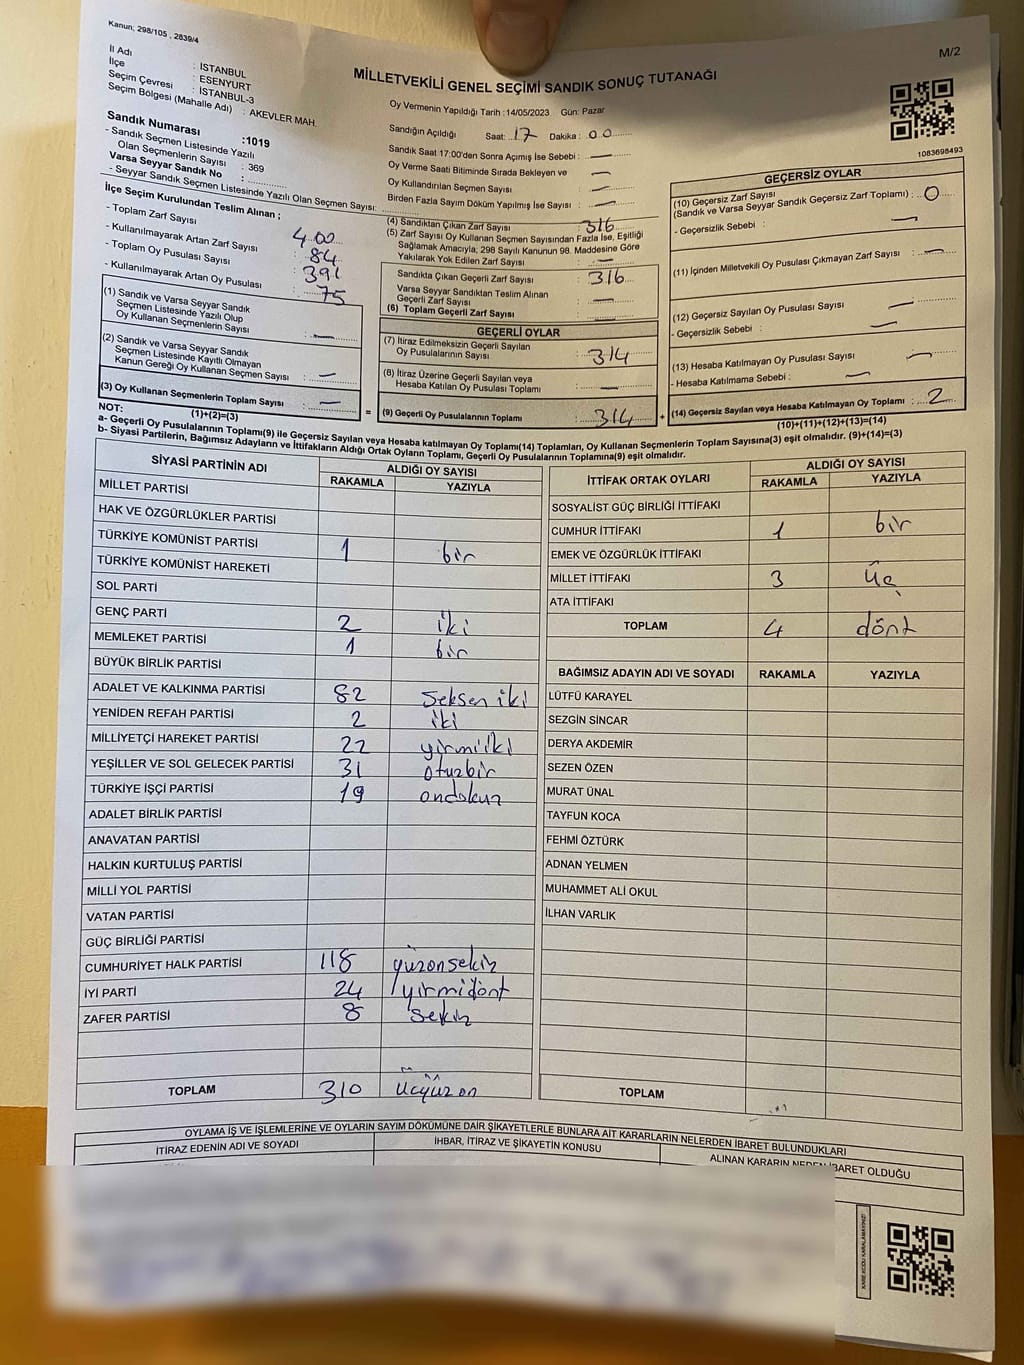 Kanun; 298/105 , 2839/4
M/2
İl Adı : ISTANBUL
İlçe : ESENYURT
Seçim Çevresi : İSTANBUL-3
Seçim Bölgesi (Mahalle Adı) : AKEVLER MAH.
Sandık Numarası :1019
- Sandık Seçmen Listesinde Yazılı
Olan Seçmenlerin Sayısı : 369
Varsa Seyyar Sandık No :
- Seyyar Sandık Seçmen Listesinde Yazılı Olan Seçmen Sayısı:
MİLLETVEKİLİ GENEL SEÇİMİ SANDIK SONUÇ TUTANAĞI
Oy Vermenin Yapıldığı Tarih :14/05/2023 Gün: Pazar
Sandığın Açıldığı Saat: 17 Dakika : 00
Sandık Saat 17:00'den Sonra Açımış İse Sebebi : —
Oy Verme Saati Bitiminde Sırada Bekleyen ve
Oy Kullandırılan Seçmen Sayısı : —
Birden Fazla Sayım Döküm Yapılmış İse Sayısı : —
1083698493
İlçe Seçim Kurulundan Teslim Alınan ;
- Toplam Zarf Sayısı : 400
- Kullanılmayarak Artan Zarf Sayısı : 84
- Toplam Oy Pusulası Sayısı : 391
- Kullanılmayarak Artan Oy Pusulası : 75
(1) Sandık ve Varsa Seyyar Sandık
Seçmen Listesinde Yazılı Olup
Oy Kullanan Seçmenlerin Sayısı : —
(2) Sandık ve Varsa Seyyar Sandık
Seçmen Listesinde Kayıtlı Olmayan
Kanun Gereği Oy Kullanan Seçmen Sayısı : —
(3) Oy Kullanan Seçmenlerin Toplam Sayısı : —
(1)+(2)=(3)
(4) Sandıktan Çıkan Zarf Sayısı : 316
(5) Zarf Sayısı Oy Kullanan Seçmen Sayısından Fazla İse, Eşitliği
Sağlamak Amacıyla; 298 Sayılı Kanunun 98. Maddesine Göre
Yakılarak Yok Edilen Zarf Sayısı : —
Sandıkta Çıkan Geçerli Zarf Sayısı : 316
Varsa Seyyar Sandıktan Teslim Alınan
Geçerli Zarf Sayısı : —
(6) Toplam Geçerli Zarf Sayısı :
GEÇERLİ OYLAR
(7) İtiraz Edilmeksizin Geçerli Sayılan
Oy Pusulalarının Sayısı : 314
(8) İtiraz Üzerine Geçerli Sayılan veya
Hesaba Katılan Oy Pusulası Toplamı : —
= (9) Geçerli Oy Pusulalarının Toplamı : 314 +
GEÇERSİZ OYLAR
(10) Geçersiz Zarf Sayısı
(Sandık ve Varsa Seyyar Sandık Geçersiz Zarf Toplamı) : 0
- Geçersizlik Sebebi : —
(11) İçinden Milletvekili Oy Pusulası Çıkmayan Zarf Sayısı : —
(12) Geçersiz Sayılan Oy Pusulası Sayısı : —
- Geçersizlik Sebebi : —
(13) Hesaba Katılmayan Oy Pusulası Sayısı : —
- Hesaba Katılmama Sebebi : —
(14) Geçersiz Sayılan veya Hesaba Katılmayan Oy Toplamı : 2
(10)+(11)+(12)+(13)=(14)
NOT:
a- Geçerli Oy Pusulalarının Toplamı(9) ile Geçersiz Sayılan veya Hesaba katılmayan Oy Toplamı(14) Toplamları, Oy Kullanan Seçmenlerin Toplam Sayısına(3) eşit olmalıdır. (9)+(14)=(3)
b- Siyasi Partilerin, Bağımsız Adayların ve İttifakların Aldığı Ortak Oyların Toplamı, Geçerli Oy Pusulalarının Toplamına(9) eşit olmalıdır.
SİYASİ PARTİNİN ADI ALDIĞI OY SAYISI
RAKAMLA YAZIYLA
MİLLET PARTİSİ
HAK VE ÖZGÜRLÜKLER PARTİSİ
TÜRKİYE KOMÜNİST PARTİSİ 1 bir
TÜRKİYE KOMÜNİST HAREKETİ
SOL PARTİ
GENÇ PARTİ 2 iki
MEMLEKET PARTİSİ 1 bir
BÜYÜK BİRLİK PARTİSİ
ADALET VE KALKINMA PARTİSİ 82 seksen iki
YENİDEN REFAH PARTİSİ 2 iki
MİLLİYETÇİ HAREKET PARTİSİ 22 yirmiiki
YEŞİLLER VE SOL GELECEK PARTİSİ 31 otuzbir
TÜRKİYE İŞÇİ PARTİSİ 19 ondokuz
ADALET BİRLİK PARTİSİ
ANAVATAN PARTİSİ
HALKIN KURTULUŞ PARTİSİ
MİLLİ YOL PARTİSİ
VATAN PARTİSİ
GÜÇ BİRLİĞİ PARTİSİ
CUMHURİYET HALK PARTİSİ 118 yüzonsekiz
İYİ PARTİ 24 yirmidört
ZAFER PARTİSİ 8 sekiz
TOPLAM 310 üçyüzon
İTTİFAK ORTAK OYLARI ALDIĞI OY SAYISI
RAKAMLA YAZIYLA
SOSYALİST GÜÇ BİRLİĞİ İTTİFAKI
CUMHUR İTTİFAKI 1 bir
EMEK VE ÖZGÜRLÜK İTTİFAKI
MİLLET İTTİFAKI 3 üç
ATA İTTİFAKI
TOPLAM 4 dört
BAĞIMSIZ ADAYIN ADI VE SOYADI RAKAMLA YAZIYLA
LÜTFÜ KARAYEL
SEZGİN SİNCAR
DERYA AKDEMİR
SEZEN ÖZEN
MURAT ÜNAL
TAYFUN KOCA
FEHMİ ÖZTÜRK
ADNAN YELMEN
MUHAMMET ALİ OKUL
İLHAN VARLIK
TOPLAM
OYLAMA İŞ VE İŞLEMLERİNE VE OYLARIN SAYIM DÖKÜMÜNE DAİR ŞİKAYETLERLE BUNLARA AİT KARARLARIN NELERDEN İBARET BULUNDUKLARI
İTİRAZ EDENİN ADI VE SOYADI İHBAR, İTİRAZ VE ŞİKAYETİN KONUSU ALINAN KARARIN NEDEN İBARET OLDUĞU
KARE KODU KARALAMAYINIZ!